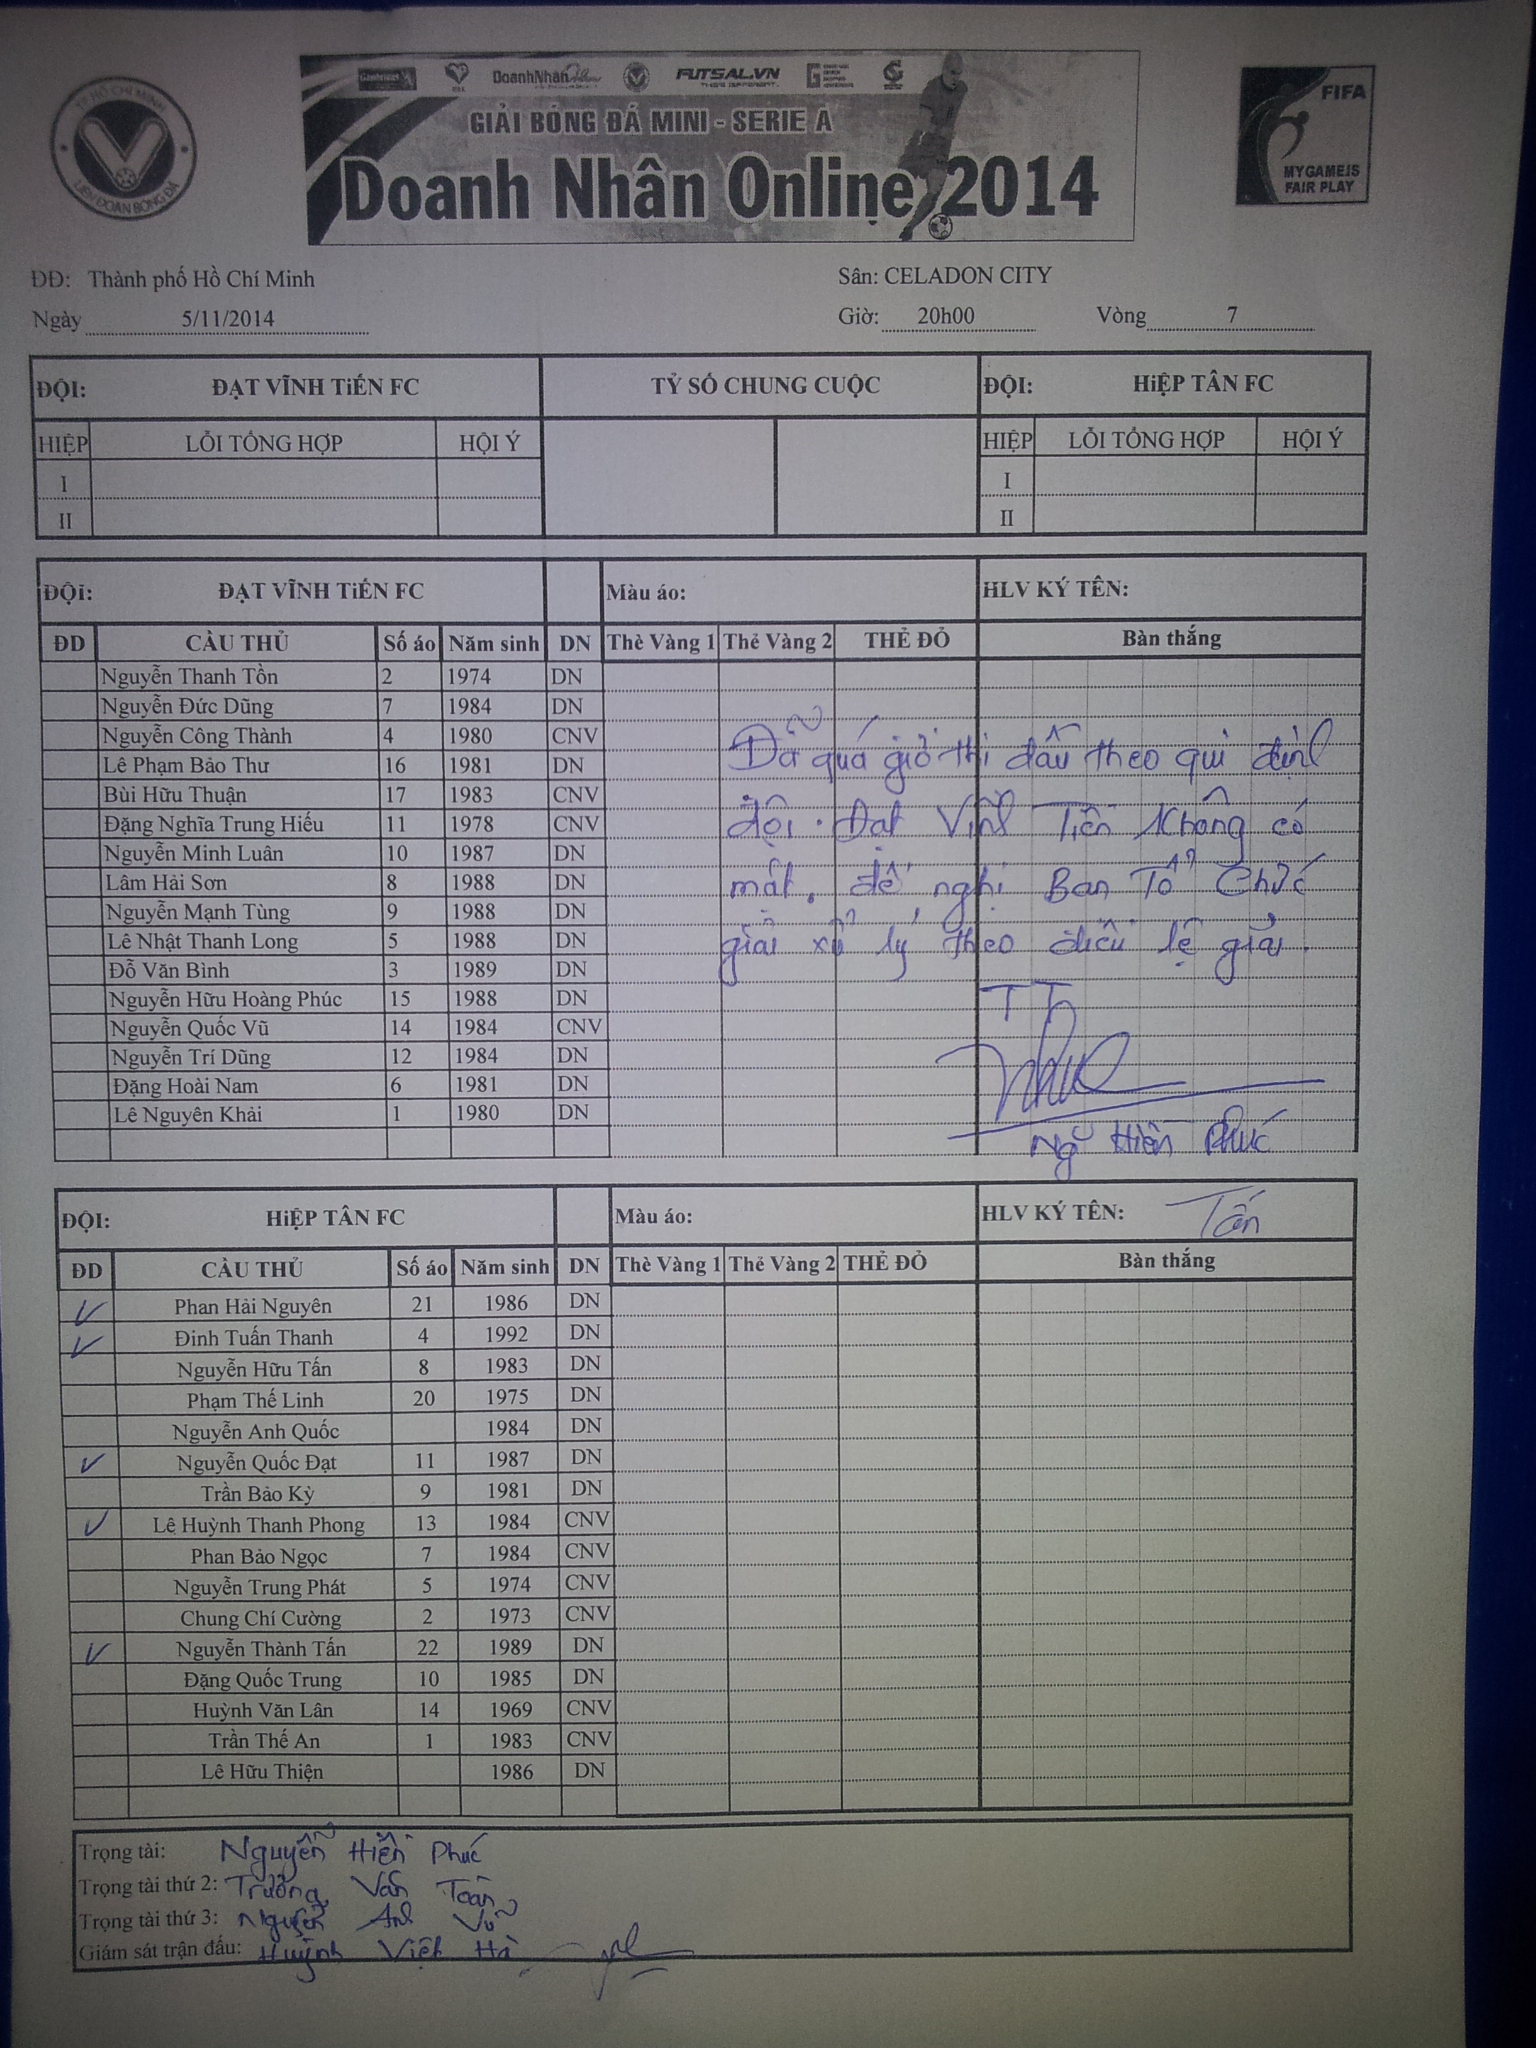 TP HỒ CHÍ MINH
LIÊN ĐOÀN BÓNG ĐÁ
DoanhNhân Online
FUTSAL.VN
GIẢI BÓNG ĐÁ MINI - SERIE A
Doanh Nhân Online 2014
FIFA
MY GAME IS
FAIR PLAY
ĐĐ: Thành phố Hồ Chí Minh
Sân: CELADON CITY
Ngày 5/11/2014
Giờ: 20h00 Vòng 7
ĐỘI: ĐẠT VĨNH TiẾN FC TỶ SỐ CHUNG CUỘC ĐỘI: HiỆP TÂN FC
HIỆP LỖI TỔNG HỢP HỘI Ý HIỆP LỖI TỔNG HỢP HỘI Ý
I I
II II
ĐỘi: ĐẠT VĨNH TiẾN FC Màu áo: HLV KÝ TÊN:
ĐD CẦU THỦ Số áo Năm sinh DN Thẻ Vàng 1 Thẻ Vàng 2 THẺ ĐỎ Bàn thắng
Nguyễn Thanh Tồn 2 1974 DN
Nguyễn Đức Dũng 7 1984 DN
Nguyễn Công Thành 4 1980 CNV
Lê Phạm Bảo Thư 16 1981 DN
Bùi Hữu Thuận 17 1983 CNV
Đặng Nghĩa Trung Hiếu 11 1978 CNV
Nguyễn Minh Luân 10 1987 DN
Lâm Hải Sơn 8 1988 DN
Nguyễn Mạnh Tùng 9 1988 DN
Lê Nhật Thanh Long 5 1988 DN
Đỗ Văn Bình 3 1989 DN
Nguyễn Hữu Hoàng Phúc 15 1988 DN
Nguyễn Quốc Vũ 14 1984 CNV
Nguyễn Trí Dũng 12 1984 DN
Đặng Hoài Nam 6 1981 DN
Lê Nguyên Khải 1 1980 DN
Đã quá giờ thi đấu theo qui định
đội. Đạt Vĩnh Tiến không có
mặt. đề nghị Ban Tổ Chức
giải xử lý theo điều lệ giải.
TT
Phuc
Ng Hiền Phúc
ĐỘI: HiỆP TÂN FC Màu áo: HLV KÝ TÊN: Tấn
ĐD CẦU THỦ Số áo Năm sinh DN Thẻ Vàng 1 Thẻ Vàng 2 THẺ ĐỎ Bàn thắng
Phan Hải Nguyên 21 1986 DN
Đinh Tuấn Thanh 4 1992 DN
Nguyễn Hữu Tấn 8 1983 DN
Phạm Thế Linh 20 1975 DN
Nguyễn Anh Quốc 1984 DN
Nguyễn Quốc Đạt 11 1987 DN
Trần Bảo Kỳ 9 1981 DN
Lê Huỳnh Thanh Phong 13 1984 CNV
Phan Bảo Ngọc 7 1984 CNV
Nguyễn Trung Phát 5 1974 CNV
Chung Chí Cường 2 1973 CNV
Nguyễn Thành Tấn 22 1989 DN
Đặng Quốc Trung 10 1985 DN
Huỳnh Văn Lân 14 1969 CNV
Trần Thế An 1 1983 CNV
Lê Hữu Thiện 1986 DN
Trọng tài: Nguyễn Hiền Phúc
Trọng tài thứ 2: Trương Văn Toàn
Trọng tài thứ 3: Nguyễn Anh Vũ
Giám sát trận đấu: Huỳnh Việt Hà